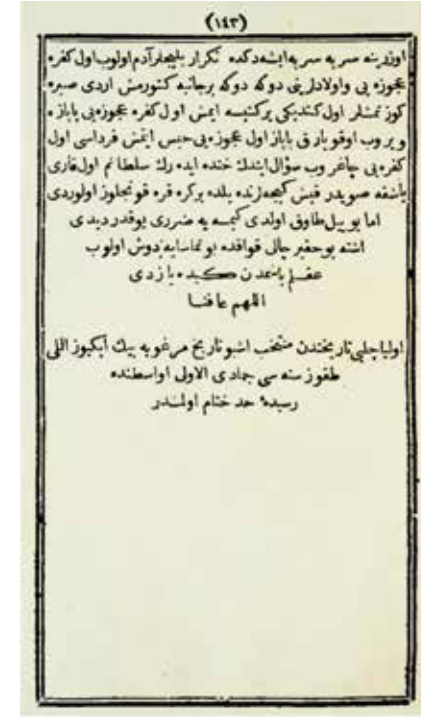 (١٤٣)
اوزرينه سر په سر په ايشه دكده تكرار پليجلر آدم اولوب اول كفره
عجوزه يی و اولادلرينی دوكه دوكه برجانبه كتورمش اردی صبره
كوز تمشلر اول كندیكی بر كنيسه ايمش اول كفره عجوزه يی پاپازه
ويروب اوقويارق پاپاز اول عجوزه يی حبس ايتمش فرداسی اول
كفره يی چاغروب سؤال ايتدك خنده ايده رك سلطانم اول قاری
باشقه صويدر قيش كيجه لرنده يلده بركره قره قونجلوز اولوردی
اما بو ييل طاوق اولدی كيمسه يه ضرری يوقدر ديدی
اشته بو حقير چالی قواقده بو تماشايه دوش اولوب
عقلم باشمدن كيده يازدی
اللهم عافنا
اوليا چلبی تاريخندن منتخب اشبو تاريخ مرغوبه بيك ايكيوز اللی
طقوز سنه سی جمادی الاول اواسطنده
رسيدهٔ حد ختام اولمشدر